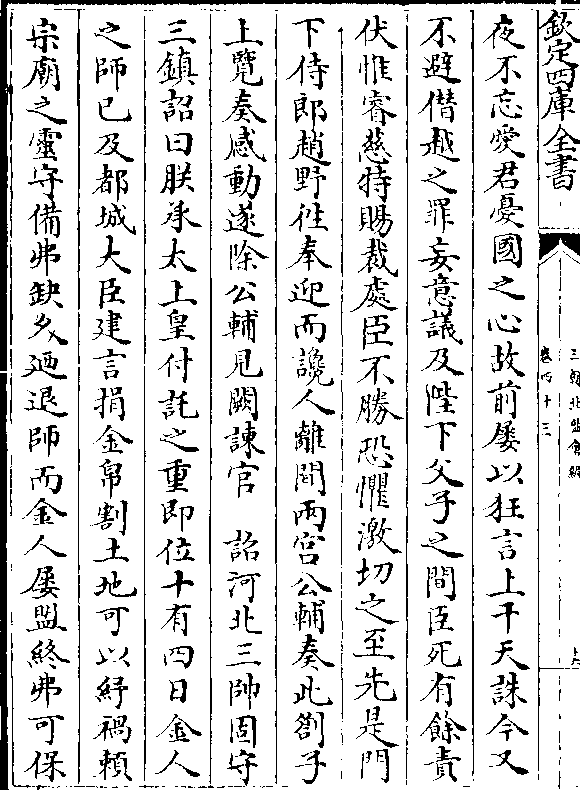 欽定四庫全書
三朝北盟會編
卷四十三
夜不忘愛君憂國之心故前屡以狂言上干天誅今又
不避僣越之罪妄意議及陛下父子之間臣死有餘責
伏惟睿慈特賜裁處臣不勝恐懼激切之至先是門
下侍郎趙野徃奉迎而讒人離間兩宮公輔奏此劄子
上覽奏感動遂除公輔見闕諫官　詔河北三帥固守
三鎮詔曰朕承太上皇付託之重即位十有四日金人
之師已及都城大臣建言捐金帛割土地可以紓禍賴
宗廟之靈守備弗缺久廼退師而金人屡盟終弗可保